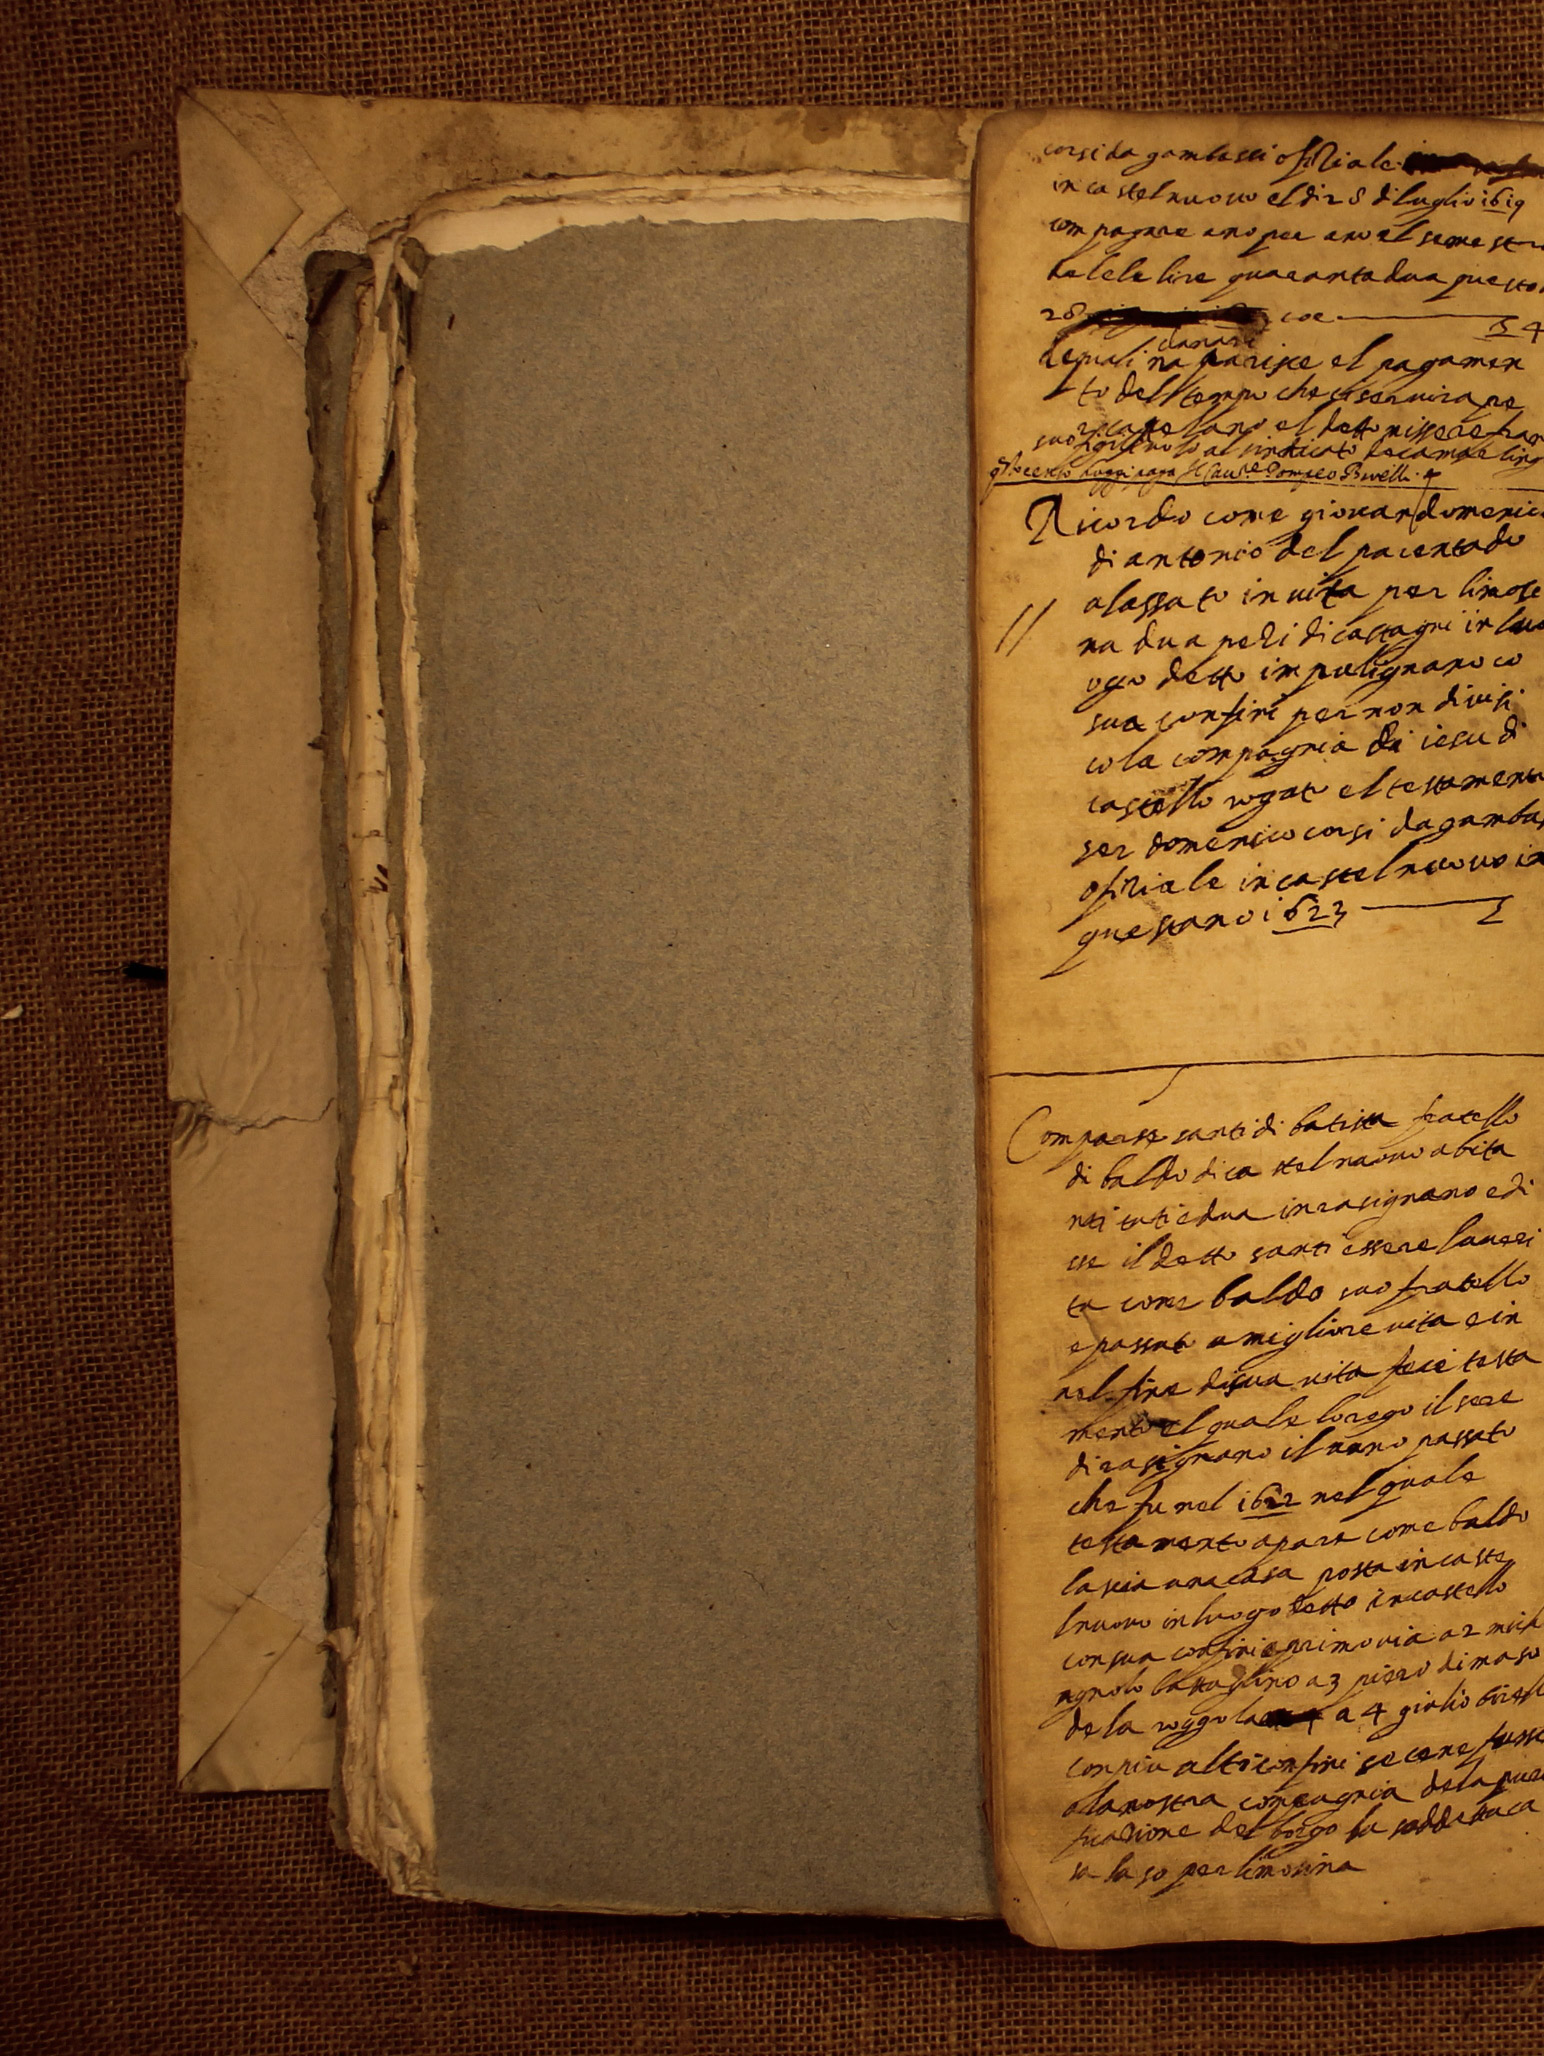 corsi da gambassi ofiziale
in castelnuovo el di 28 di luglio 1619
com pagare ano per ano el semestre
de lele lire quaranta dua questo
28 coe 4
danari
dequali na parisce el pagamen
to del tempo che si servira pe
capelano el detto missere fran
suo al sindicato decamarling
censo hoggi paga il Cau.re Pompeo Birelli
Ricordo come giovandomenico
di antonio del pacentado
alassato in vita per limose
na dua pedi di castagni in luo
ogo detto im pulignano co
sua confini per non divisi
cola compagnia di iesu di
castello rogato el testamento
ser domenico corsi da gambas
ofiziale in castelnuovo in
questano 1623
Comparse santi di batista fratello
di baldo di ca stelnuovo abita
nti tuti e dua in rasignano e di
sse il detto santi essere la veri
ta come baldo suo fratello
e passato a migliore vita e in
nel fine di sua vita fece testa
mento el quale lo rogo il sere
di rasignano il anno passato
che fu nel 1622 nel quale
testamento apare come baldo
lascia una casa posta in caste
lnuovo in luogo detto in castello
con sua confini a primo via a 2 mich
agnolo battaglino a 3 piero di maso
de la roggola a 4 giulio birell
con piu altri confini se cene fusse
ala nostra compagnia dela puri
ficazione del borgo la soddetta ca
sa laso per limosina